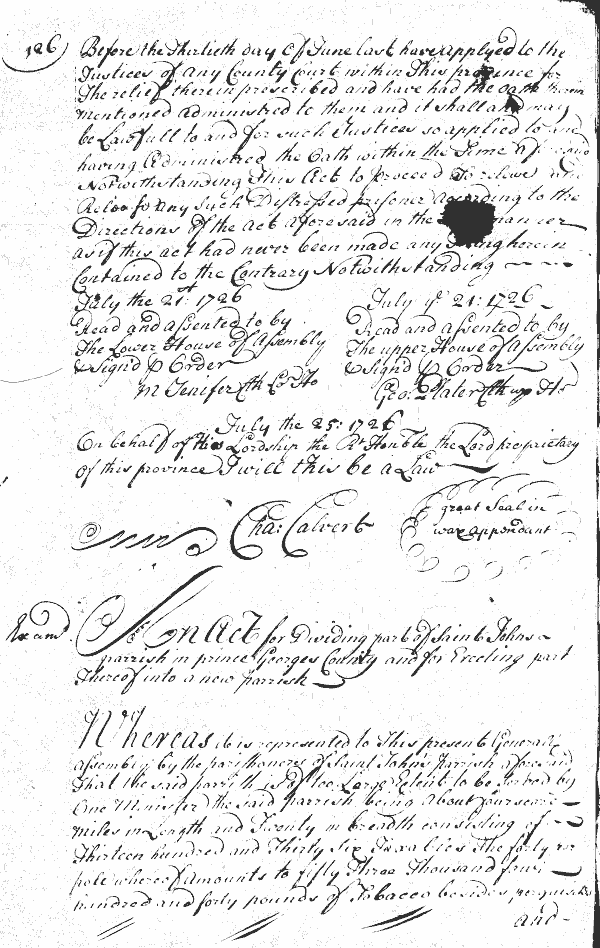 126
Before the Thirtieth day of June last have applyed to the
Justices of any County Court within this province for
The relief therein prescribed and have had the oath therein
mentioned administred to them and it shall and may
be Lawfull to and for such Justices so applied to and
having Administred the Oath within the Time aforesaid
Notwithstanding this Act to proceed To releive and
Release any Such Distressed prisoner According to the
Directions of the act aforesaid in the manner
as if this act had never been made any thing herein
Contained to the Contrary Notwithstanding
July the 21st: 1726
Read and assented to by
The Lower House of Assembly
& Signd p Order
M Jenifer Clk Lo Ho
July ye 21: 1726
Read and assented to by
The upper House of Assembly
& Signd p Order
Geo: Plater Clk up Ho
July the 25: 1726
On behalf of his Lordship the Rt Honble the Lord proprietary
of this province I will this be a Law
Cha: Calvert
great Seal in
wax appendant
Examd.
An Act for Dividing part of Saint Johns
parrish in prince Georges County and for Erecting part
thereof into a new parrish
Whereas it is represented to This present Generall
assembly by the parishoners of Saint John's Parrish aforesaid
That the said parrish is of too Large Extent to be served by
One Minister the said parrish being about fourscore
miles in Length and Twenty in breadth consisting of
Thirteen hundred and Thirty Six Taxables The forty per
pole whereof amounts to fifty Three Thousand four
hundred and forty pounds of Tobacco besides perquisits
and